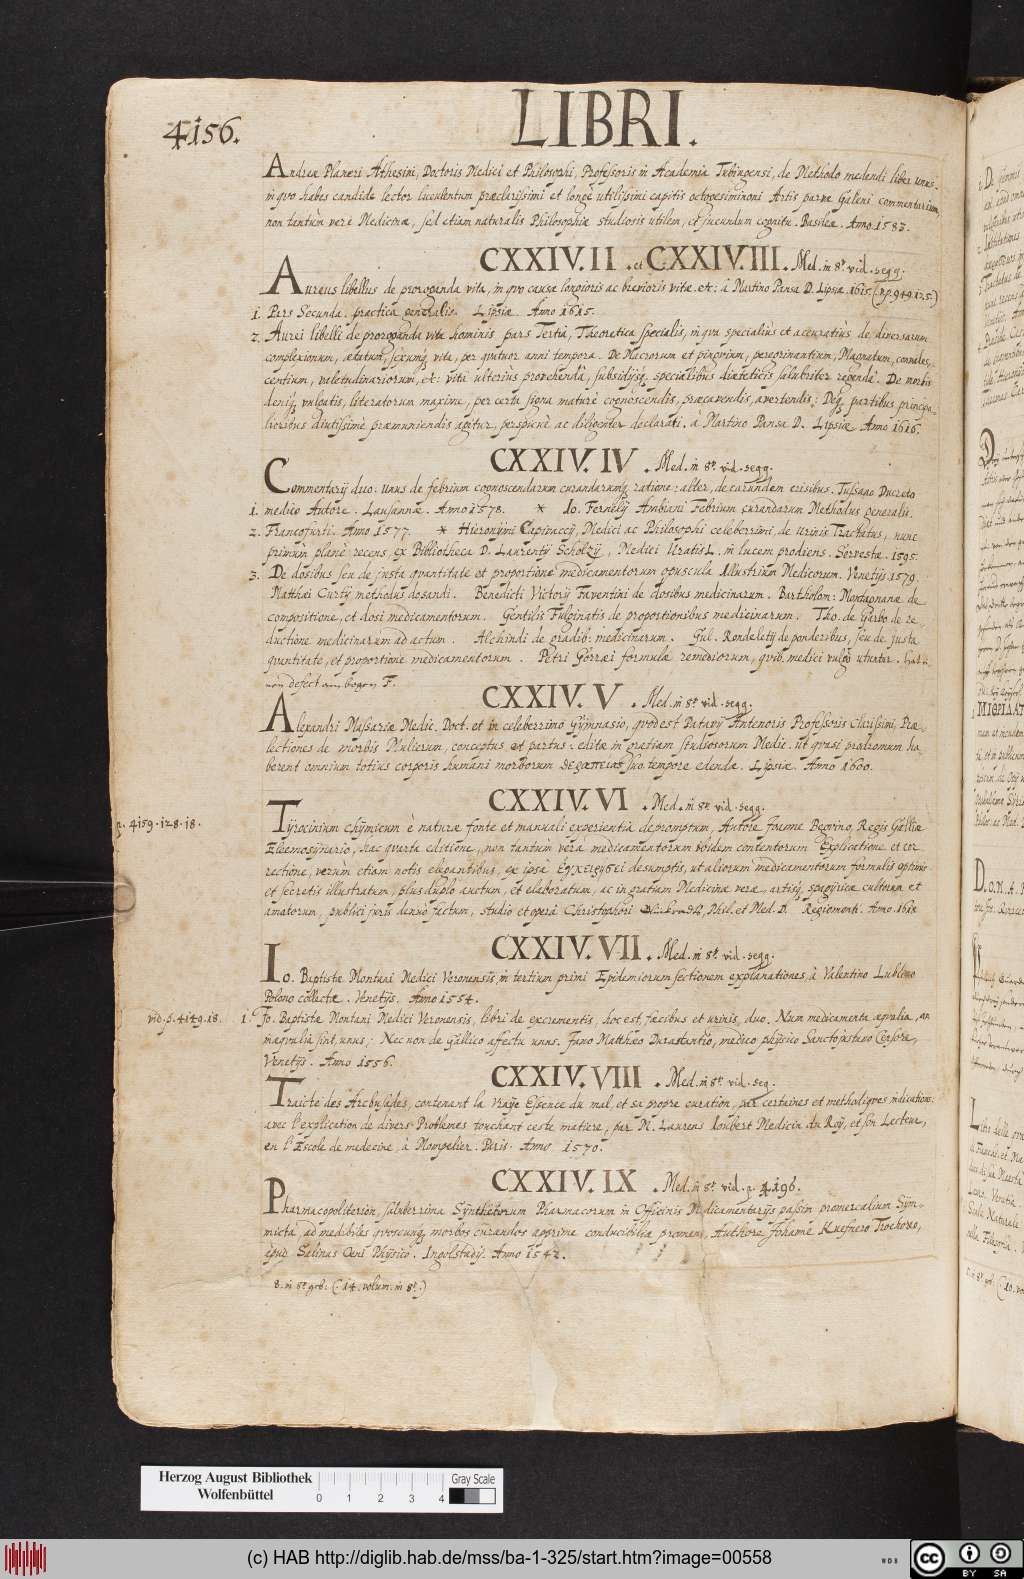 4156.
LIBRI.
Andreæ Planeri Athesini, Doctoris Medici et Philosophi, Professoris in Academia Tubingensi, de Methodo medendi liber unus.
in quo habes candide lector luculentum præclarissimi et longè utilissimi capitis octogesiminoni Artis parvæ Galeni commentarium,
non tantùm veræ Medicinæ, sed etiam naturalis Philosophiæ studiosis utilem, et jucundum cognitu. Basileæ. Anno 1583.
CXXIV. II . et CXXIV. III . Med. in 8º vid. segg.
Aureus libellus de proroganda vita, in quo causæ longioris ac brevioris vitæ etc: à Martino Pansa D. Lipsiæ. 1615. (.p. 949.125.)
1. Pars Secunda. practica generalis. Lipsiæ. Anno 1615.
2. Aurei libelli de proroganda vita hominis pars Tertia, Theoretica specialis, in qua specialiùs et accuratiùs de diversarum
complexionum, ætatum, sexumq, vita, per quatuor anni tempora. De Macrorum et pinguium, peregrinantium, Magnatum, convales,
centium, valetudinariorum, etc: vita ulterius provehenda, subsidijsq specialibus diæteticis salubriter regenda. De morbis
deniq, vulgatis, literatorum maxime, per certa signa maturè cognoscendis, præcavendis, avertendis: Deq, partibus principa-
lioribus diutissimè præmuniendis agitur, perspicuè ac diligenter declarati. à Martino Pansa D. Lipsiæ Anno 1616.
CXXIV. IV . Med. in 8º vid. segg.
Commentarij duo: unus de febrium cognoscendarum curandarumq ratione: alter, de earundem crisibus. Jussaao Ducreto
1. medico Autore. Lausannæ. Anno 1578. * Io. Fernelij Ambiani Febrium curandarum Methodus generalis.
2. Francofurti. Anno 1577. * Hieronymi Capivacij, Medici ac Philosophi celeberrimi de Urinis Tractatus, nunc
primùm planè recens, ex Bibliotheca D. Laurentij Scholzij, Medici UratisL. in lucem prodiens. Servestæ. 1595.
3. De dosibus seu de justa quantitate et proportione medicamentorum opuscula Illustrium Medicorum. Venetijs 1579.
Matthæi Curtij methodus dosandi. Benedicti Victorij Faventini de dosibus medicinarum. Bartholom: Montagnanæ de
compositione, et dosi medicamentorum. Gentilis Fulginatis de proportionibus medicinarum. Tho. de Garbo de re,
ductione medicinarum ad actum. Alchindi de gradib: medicinarum. Gul. Rondeletij de ponderibus, seu de justa
quantitate, et proportione medicamentorum. Petri Gorræi formulæ remediorum, quib, medici vulgò utuntur.
non defect am bogen F.
CXXIV. V . Med. in 8º vid. segg.
Alexandri Massariæ Medic. Doct. et in celeberrimo Gymnasio, quod est Patavij Antenoris Professoris Clarissimi, Præ,
lectiones de morbis Mulierum, conceptus et partus: editæ in gratiam studiosorum Medic. ut quasi prodromum ha,
berent omnium totius corporis humani morborum θεραπειας suo tempore edendæ. Lipsiæ. Anno 1600.
CXXIV. VI . Med. in 8º vid. segg.
p. 4159.128.18.
Tyrocinium chymicum è naturæ fonte et manuali experientia depromptum, Autore Joanne Beguino, Regis Galliæ
Eleemosynario, hac quarta editione, non tantùm verâ medicamentorum ibidem contentorum Explicatione et cor
rectione, verùm etiam notis elegantibus, ex ipsâ Εγχειρησει desumptis, ut aliorum medicamentorum formulis optimis
et secretis illustratum, plus duplo auctum, et elaboratum, ac in gratiam Medicinæ veræ, artisq, spagyricæ cultorum et
amatorum, publici juris denuò factum, studio et operâ Christophori Phil. et Med. D. Regiomonti. Anno. 1618
CXXIV. VII . Med. in 8º. vid. segg.
Io. Baptistæ Montani Medici Veronensis, in tertium primi Epidemiorum sectionem explanationes, à Valentino Lublino
Polono collectæ. Venetijs. Anno 1554.
vid. p. 4149.18.
1. Jo. Baptistæ Montani Medici Veronensis, libri de excrementis, hoc est, fæcibus et urinis, duo. Num medicamenta æqualia, an
inæqualia sint, unus; Nec non de Gallico affectu unus. Jano Matthæo Durastantio, medico physico Sanctojustano Censore,
Venetijs. Anno 1556.
CXXIV. VIII . Med. in 8º. vid. seg.
Traicté des Arcbusades, contenant la vraye Essence du mal, et sa propre curation, par certaines et methodiques indications:
avec l'explication de divers Problemes touchant ceste matiere, par M. Laurens Ioubert Medicin du Roy, et son Lecteur,
en l'Escole de medecine, à Mompelier. Paris. Anno 1570.
CXXIV. IX . Med. in 8º. vid. p. 4196.
Pharmacopoliterion, saluberrima Synthetorum Pharmacorum in Officinis Medicamentarijs passim promercalium Sym-
micta, ad medibiles quoscunq morbos curandos apprime conducibilia promens, Authore Johanne Kuefnero Trochoreo,
apud Salinas Oeni Physico. Ingolstadij. Anno 1542.
8. in 8º. geb: (. 14. volum. in 8º.)
MIΘΡΙΔΑΤ
D.O.M.A.
Herzog August Bibliothek
Wolfenbüttel
0 1 2 3 4
Gray Scale
(c) HAB http://diglib.hab.de/mss/ba-1-325/start.htm?image=00558
WDB
cc BY SA